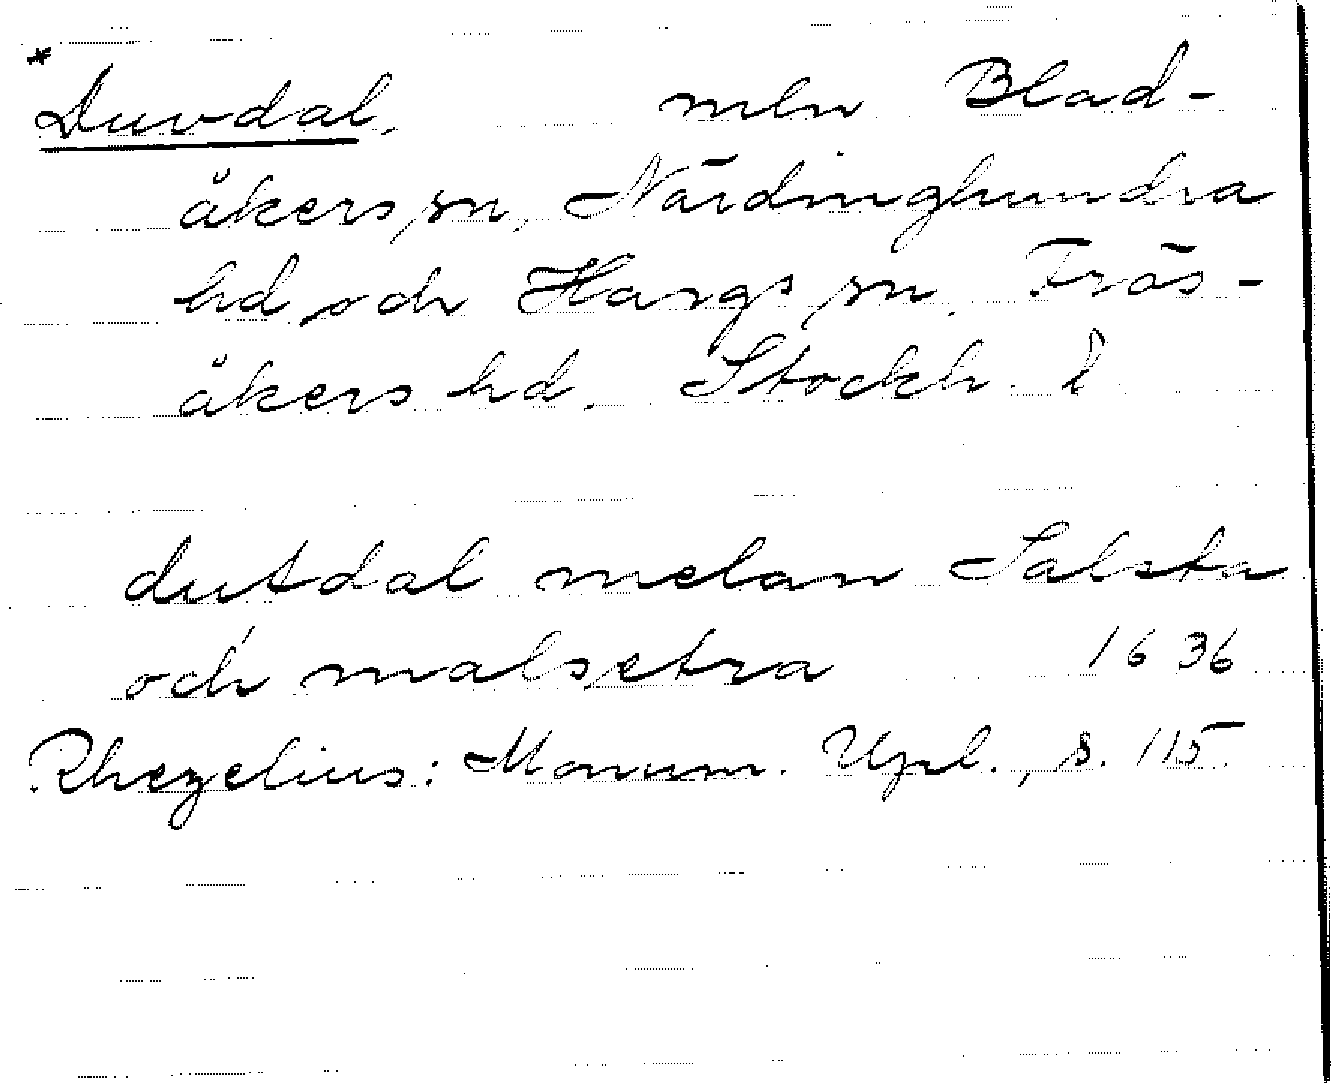 * Duvdal, mln Blad-
åkers sn, Närdinghundra
hd och Hargs sn, Frös-
åkers hd. Stockh. l
dutdal melan Salsta
och malsetra 1636
Rhezelius: Monum. Upl., s. 115.